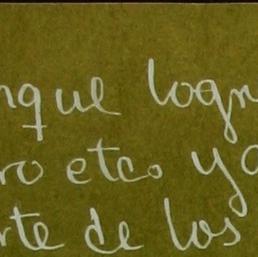 nque logr
ro etc. ya
rte de los